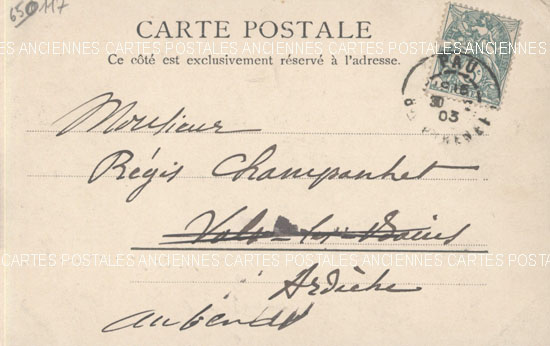 65 117
CARTE POSTALE
Ce côté est exclusivement réservé à l'adresse.
PAU
30
03
Monsieur
Régis Champanhet
Vals-les-Bains
Ardèche
ANCIENNES CARTES POSTALES ANCIENNES CARTES POSTALES ANCIENNES
CARTES POSTALES ANCIENNES CARTES POSTALES ANCIENNES CARTES POSTALES